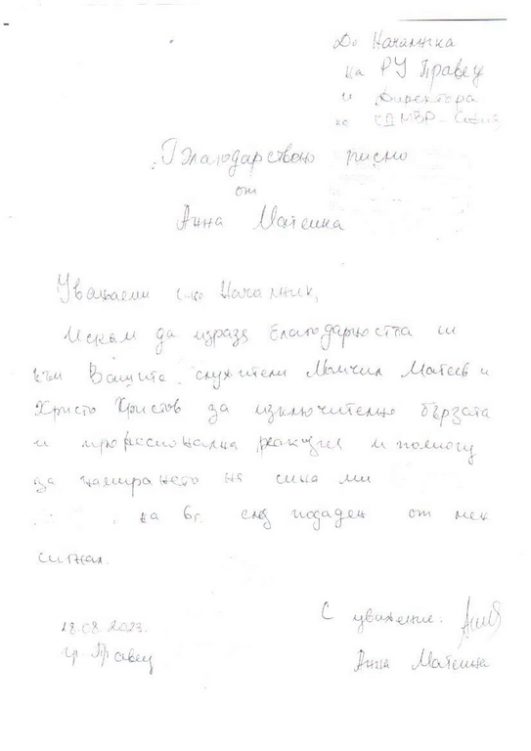 До Началника
на РУ Правец
и Директора
на СДМВР - София
Благодарствено писмо
от
Анна Матеина
Уважаеми г-н Началник,
Искам да изразя благодарността си
към Вашите служители Момчил Матеев и
Христо Христов за изключително бързата
и професионална реакция и помощ
за намирането на сина ми
на 6г. след подаден от мен
сигнал.
18.08.2023.
гр. Правец
С уважение.
Анна Матеина